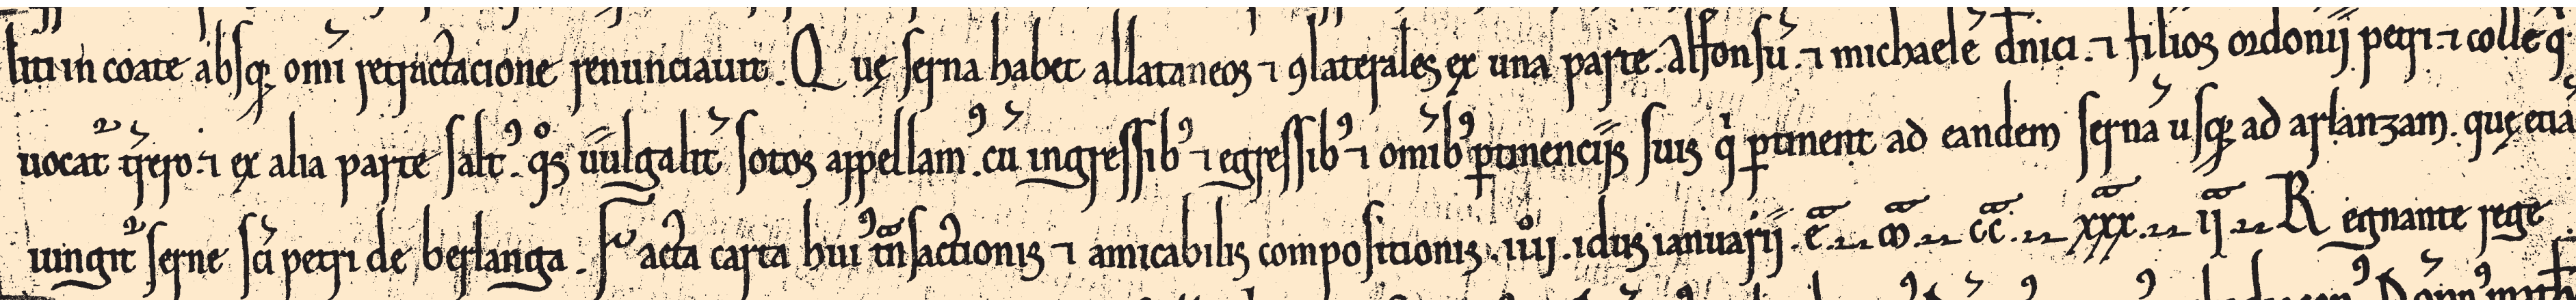 liti in coate absq; om̄i retractacione renunciauit. Quę serna habet allataneos ⁊ ꝯlaterales ex una parte. Alfonsū. ⁊ michaelē d̄nici. ⁊ filios ordonij petri. ⁊ collē q̇
uocat᷑ q̄rero. ⁊ ex alia parte salt᷒. qͦs uulgalit̄ sotos appellam᷒. cū ingressib᷒ ⁊ egressib᷒ ⁊ om̄ib᷒ ꝑtinencijs suis q̇ ꝑtinent ad eandem sernā usq; ad arlanzam. quę etiā
iungit᷑ serne sc̄i petri de berlanga. Facta carta hui᷒ t̄nsactionis ⁊ amicabilis compositionis. iiij. idus ianuarij. e. m. cc. xxx. ij. Regnante rege